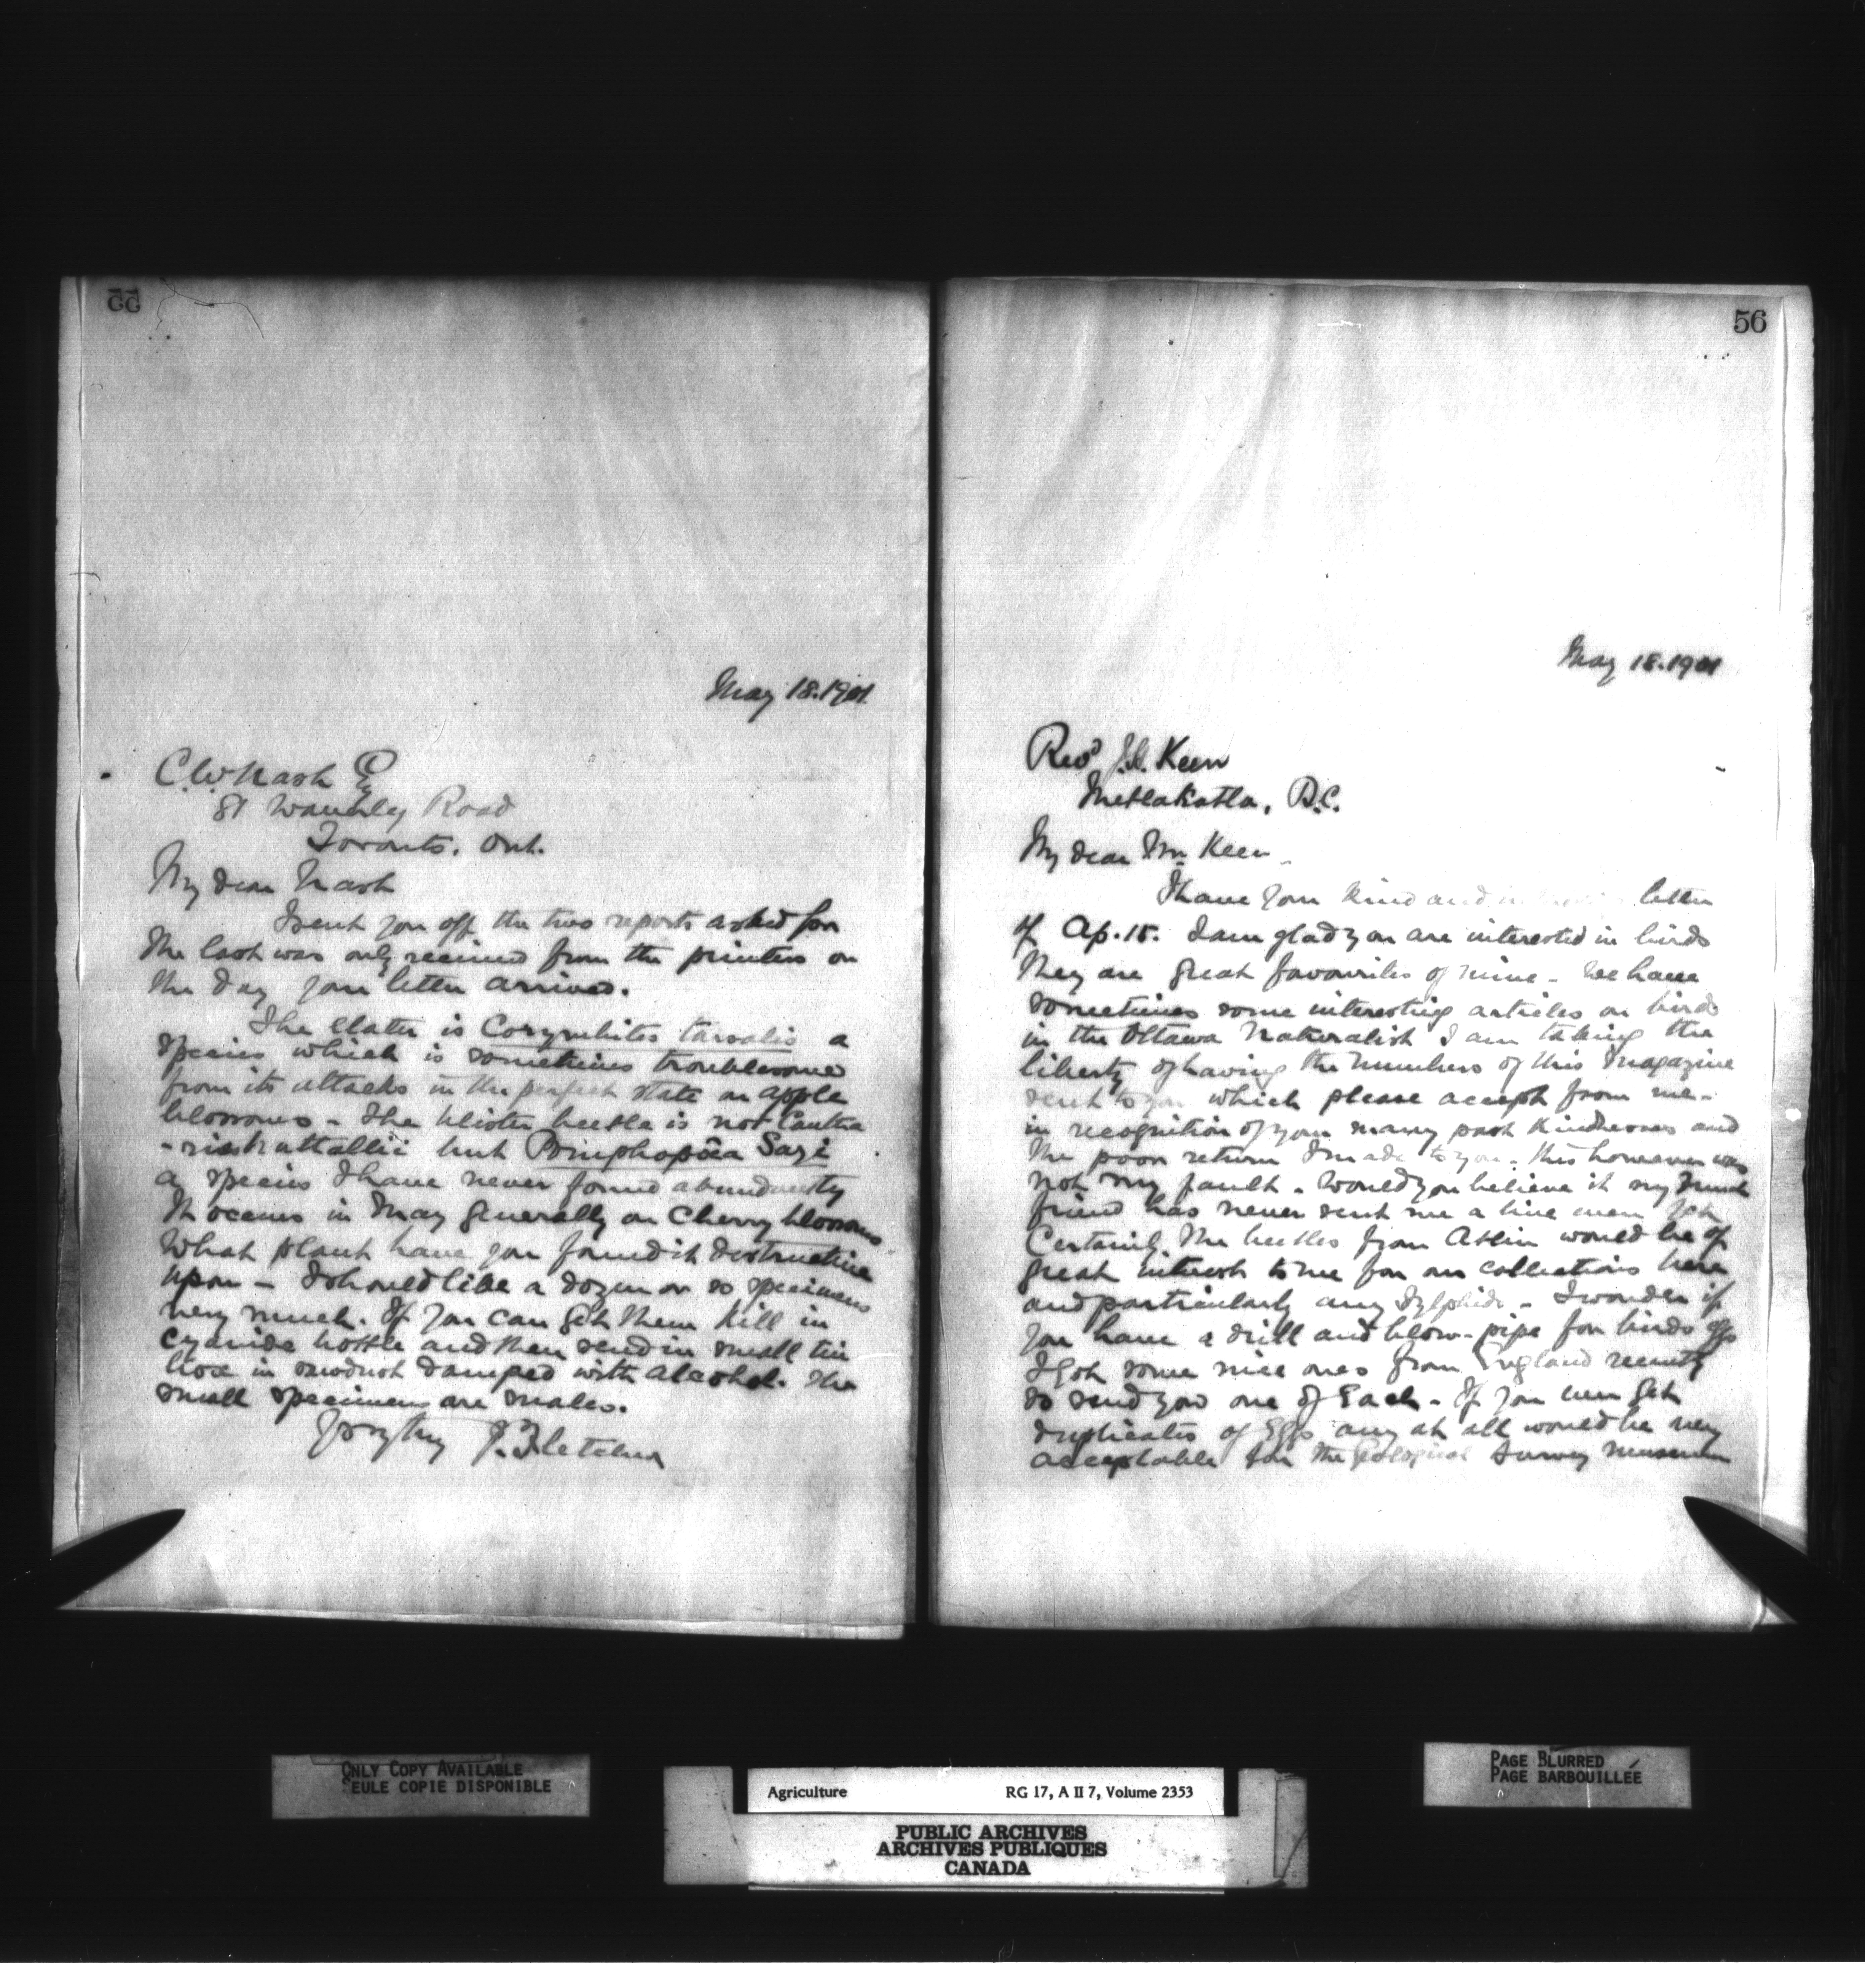 55
May 18. 1901
C.W. Nash Esq
81 Waverley Road
Toronto. Ont.
My dear Nash
I sent you off the two reports asked for
The last was only received from the printers on
the day your letter arrived.
The Elater is Corymbites tarsalis a
species which is sometimes troublesome
from its attacks in the perfect state on apple
blossoms - The blister beetle is not Cantha
-ris nuttallii but Pomphopœa Sayi
a species I have never found abundantly
It occurs in May generally on Cherry blossoms
What plant have you found it destructive
upon - I should like a dozen or so specimens
very much. If you can get them kill in
cyanide bottle and then send in small tin
box in sawdust damped with alcohol. The
small specimens are males.
Yrs truly J. Fletcher
56
May 18. 1901
Revd J.H. Keen
Metlakatla, B.C.
My dear Mr Keen
I have your kind and letter
of Ap. 15. I am glad you are interested in birds
They are great favourites of mine - We have
sometimes some interesting articles on birds
in the Ottawa Naturalist I am taking the
liberty of having the numbers of this magazine
sent to you which please accept from me -
in recognition of your many past kindnesses and
the poor return I made to you. This however was
not my fault. Would you believe it my
friend has never sent me a line even yet
Certainly the beetles from Atlin would be of
great interest to me for our collections here
and particularly any - I wonder if
you have a drill and blow-pipe for birds eggs
I got some nice ones from England recently
so send you one of Each - If you can get
duplicates of Eggs any at all would be very
acceptable for the Geological Survey Museum
ONLY COPY AVAILABLE
SEULE COPIE DISPONIBLE
Agriculture RG 17, A II 7, Volume 2353
PUBLIC ARCHIVES
ARCHIVES PUBLIQUES
CANADA
PAGE BLURRED
PAGE BARBOUILLÉE